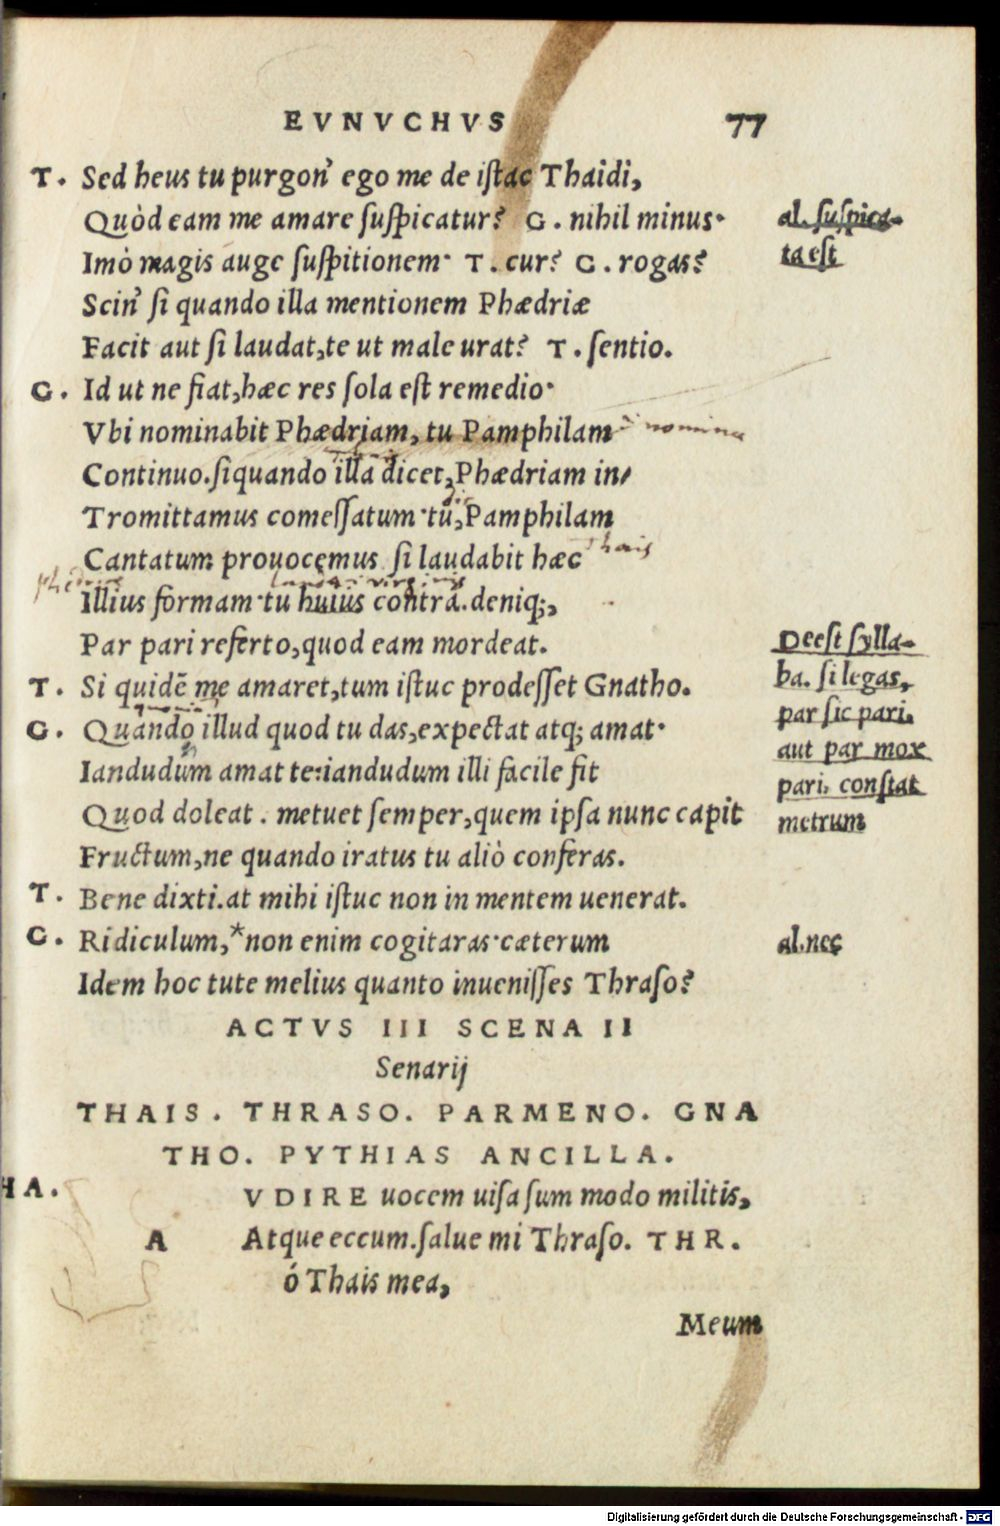 EVNVCHVS 77
T. Sed heus tu purgon' ego me de istac Thaidi,
Quòd eam me amare suspicatur? G. nihil minus.
al. suspica-
ta est
Imò magis auge suspitionem. T. cur? G. rogas?
Scin' si quando illa mentionem Phædriæ
Facit aut si laudat, te ut male urat? T. sentio.
G. Id ut ne fiat, hæc res sola est remedio.
Vbi nominabit Phædriam, tu Pamphilam nomina
Continuo. siquando illa dicet, Phædriam in/
Tromittamus comessatum. tu, Pamphilam
Cantatum prouocemus. si laudabit hæc Thais
Illius formam. tu huius contrà. deniq;,
Par pari referto, quod eam mordeat.
Deest sylla-
ba. si legas,
par sic pari.
aut par mox
pari. constat
metrum
T. Si quidē me amaret, tum istuc prodesset Gnatho.
G. Quando illud quod tu das, expectat atq; amat.
Iandudum amat te: iandudum illi facile fit
Quod doleat. metuet semper, quem ipsa nunc capit
Fructum, ne quando iratus tu aliò conferas.
T. Bene dixti. at mihi istuc non in mentem uenerat.
G. Ridiculum, *non enim cogitaras. cæterum
al. nec
Idem hoc tute melius quanto inuenisses Thraso?
ACTVS III SCENA II
Senarij
THAIS. THRASO. PARMENO. GNA
THO. PYTHIAS ANCILLA.
HA. VDIRE uocem uisa sum modo militis,
A Atque eccum. salue mi Thraso. THR.
ó Thais mea,
Meum
Digitalisierung gefördert durch die Deutsche Forschungsgemeinschaft - DFG